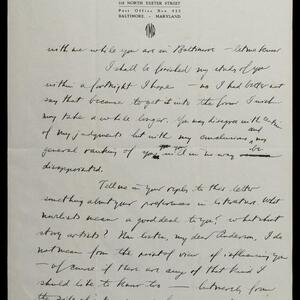 110 NORTH EXETER STREET
Post Office Box 935
BALTIMORE - MARYLAND
with me while you are in Baltimore — let me know.
I shall be finished my study of you
within a fortnight I hope — no I had better not
say that because to get it into the form I wish
may take a while longer. You may disagree with
of my judgments but with my conclusions and my
general ranking of you you will in no way be
disappointed.
Tell me in your reply to this letter
something about your preferences in literature. What
novelists mean a good deal to you? what short
story artists? Now listen, my dear Anderson, I do
not mean from the point of view of influencing you
— of course if there are any of that kind I
should like to know too — but merely from